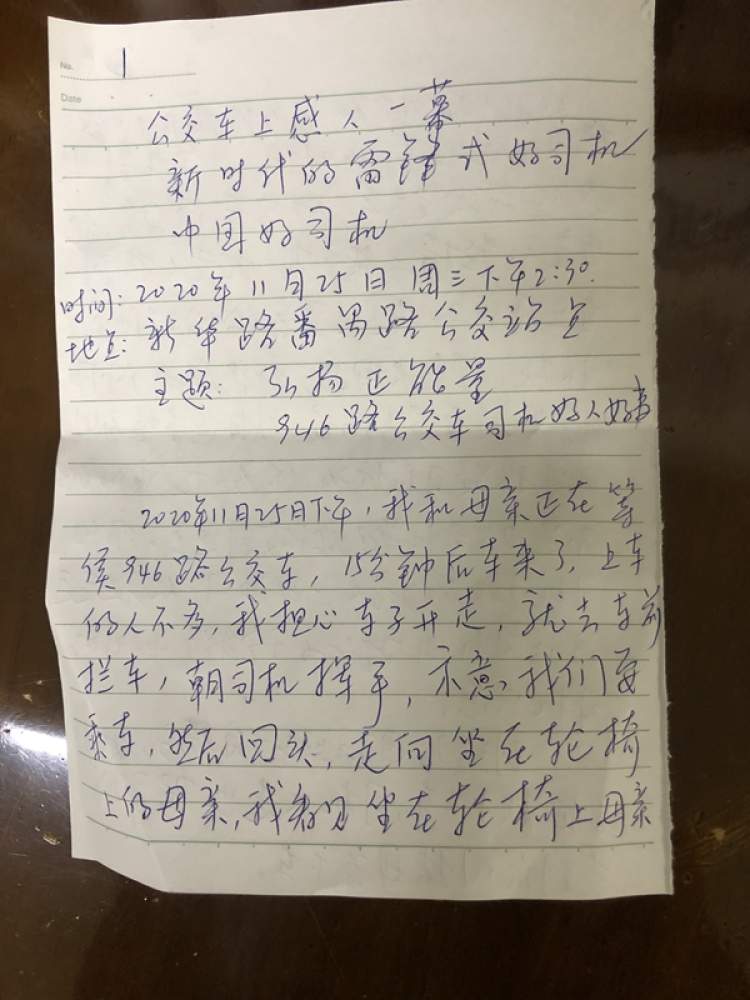 No. 1
Date
公交车上感人一幕
新时代的雷锋式好司机
中国好司机
时间:2020年11月25日周三下午2:30.
地点:新华路番禺路公交站点
主题:弘扬正能量
946路公交车司机好人好事
2020年11月25日下午,我和母亲正在等
候946路公交车,15分钟后车来了,上车
的人不多,我担心车子开走,就去车前
拦车,朝司机挥手,示意我们要
乘车,然后回头,走向坐在轮椅
上的母亲,我看见坐在轮椅上母亲